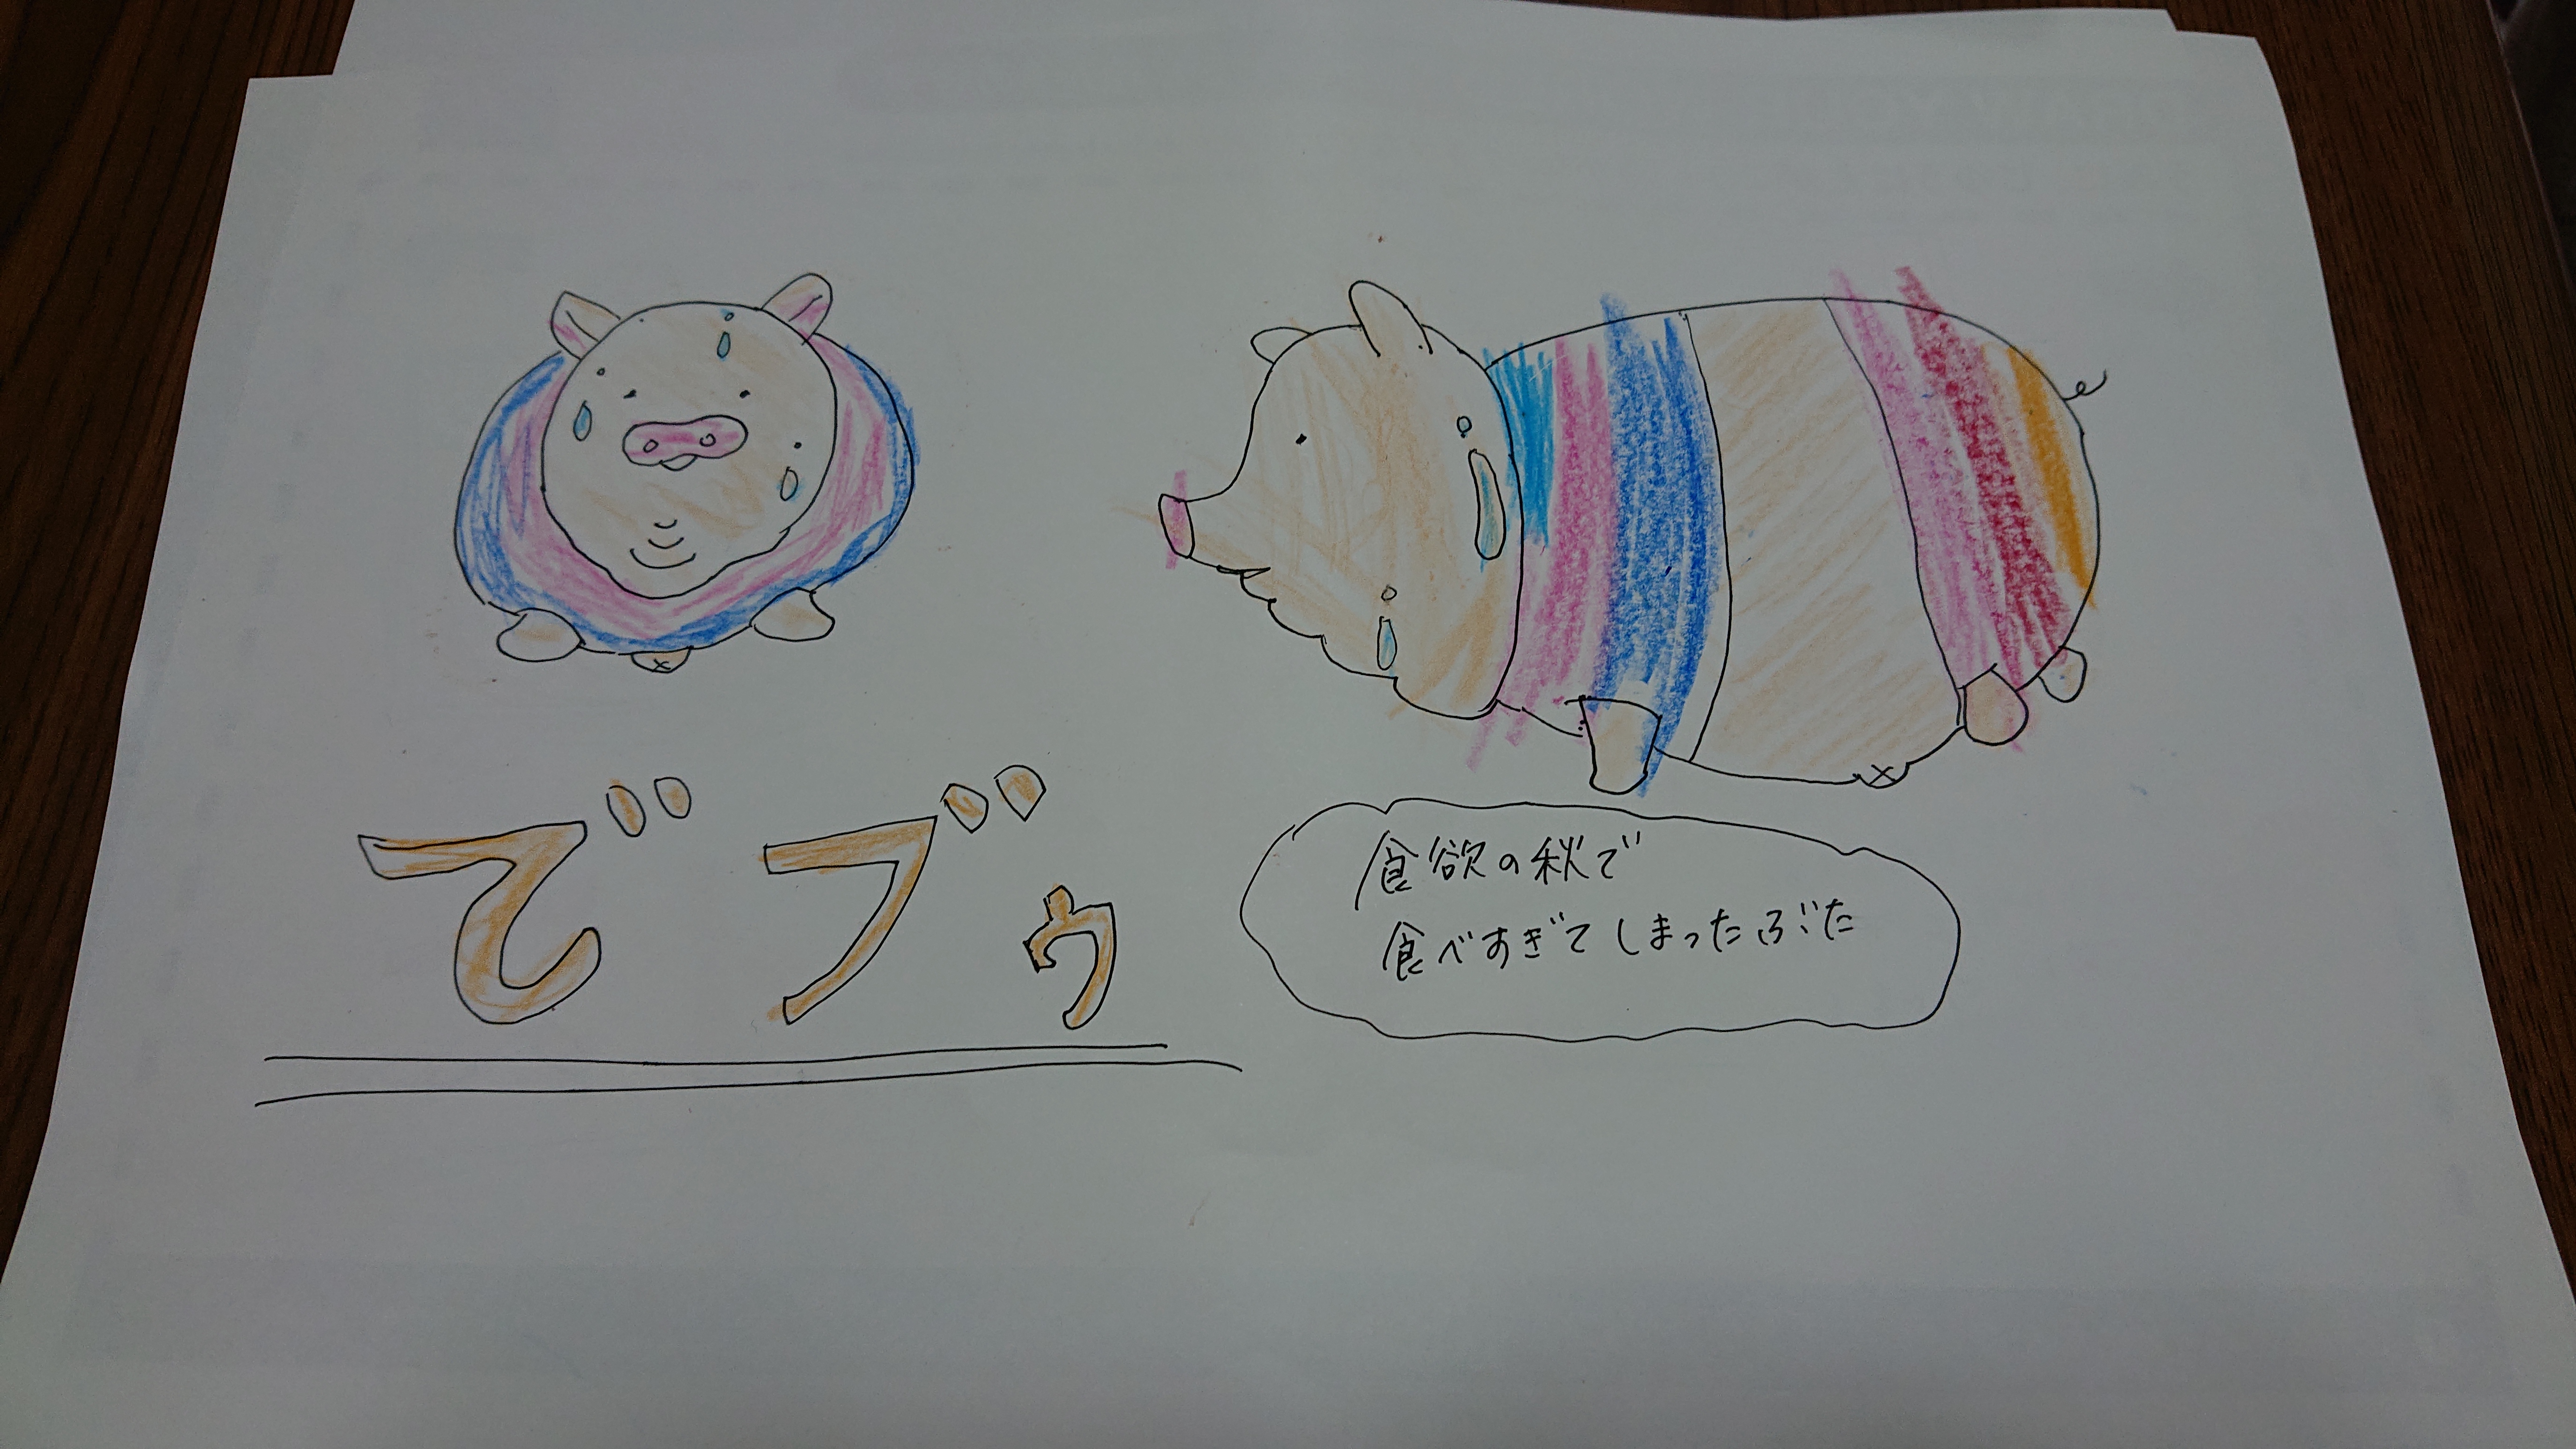 でブゥ
食欲の秋で
食べすぎてしまったぶた